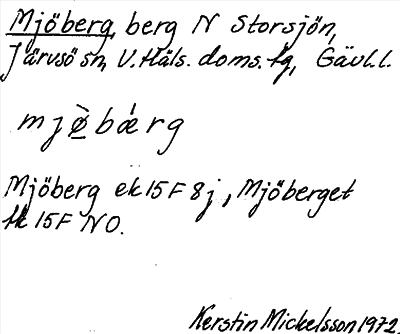 Mjöberg, berg N Storsjön,
Järvsö sn, V. Häls. doms. tg, Gävl. l.
mjø̀bǽrg
Mjöberg ek 15 F 8 j, Mjöberget
tk 15 F NO.
Kerstin Mickelsson 1972.